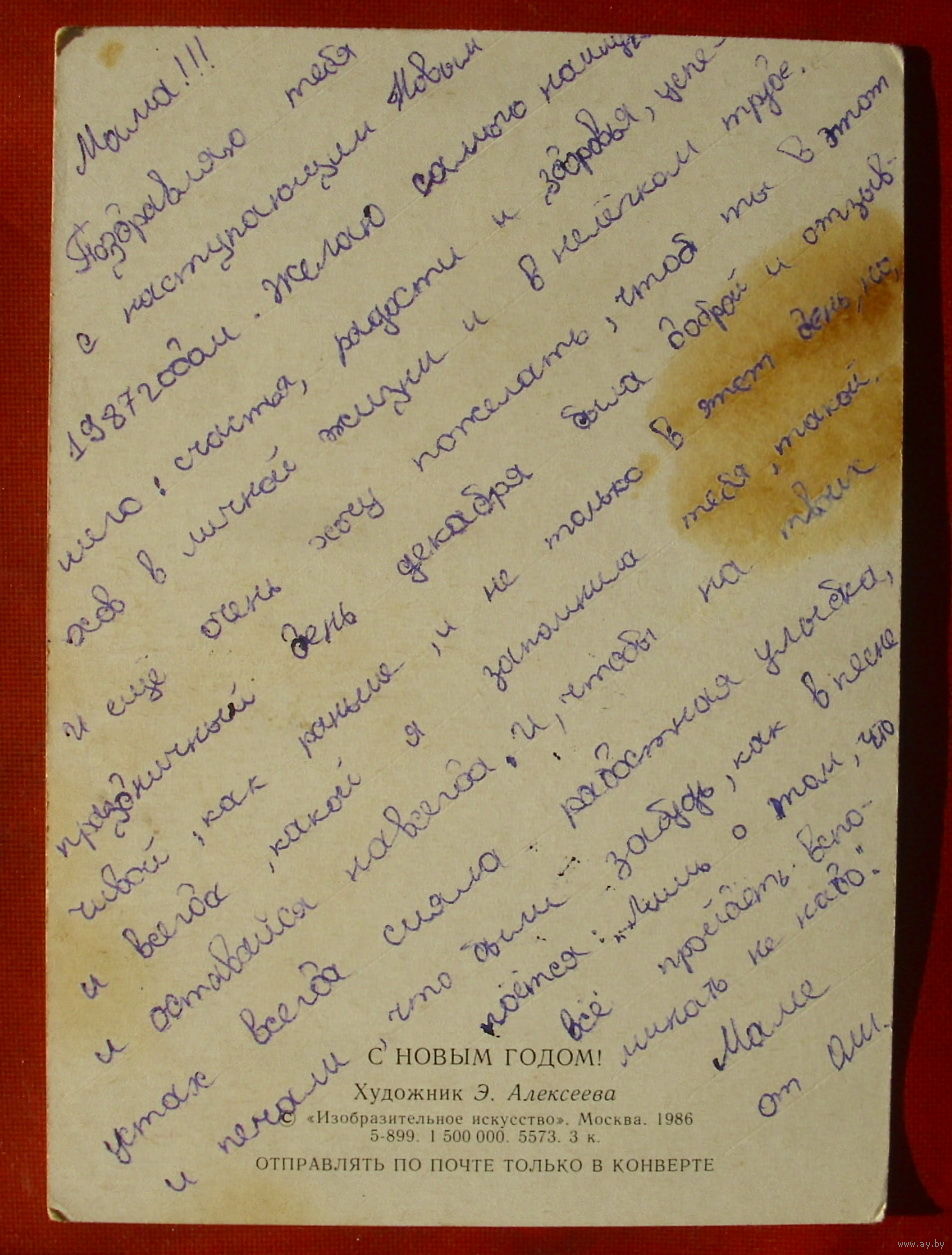 Мама!!!
Поздравляю тебя
с наступающим Новым
1987 годом. Желаю самого наилуч
шего: счастья, радости и здоровья, успе-
хов в личной жизни и в нелёгком труде.
И ещё очень хочу пожелать, чтоб ты в этот
праздничный день декабря была доброй и отзыв-
чивой, как раньше, и не только в этот день, но
и всегда, какой я запомнила тебя, такой
и оставайся навсегда. И, чтобы на твоих
устах всегда сияла радостная улыбка,
и печали, что были забудь, как в песне
поётся: "Лишь о том, что
всё пройдёт вспо-
минать не надо."
Маме
от
С НОВЫМ ГОДОМ!
Художник Э. Алексеева
© «Изобразительное искусство». Москва. 1986
5-899. 1 500 000. 5573. 3 к.
ОТПРАВЛЯТЬ ПО ПОЧТЕ ТОЛЬКО В КОНВЕРТЕ
www.ay.by